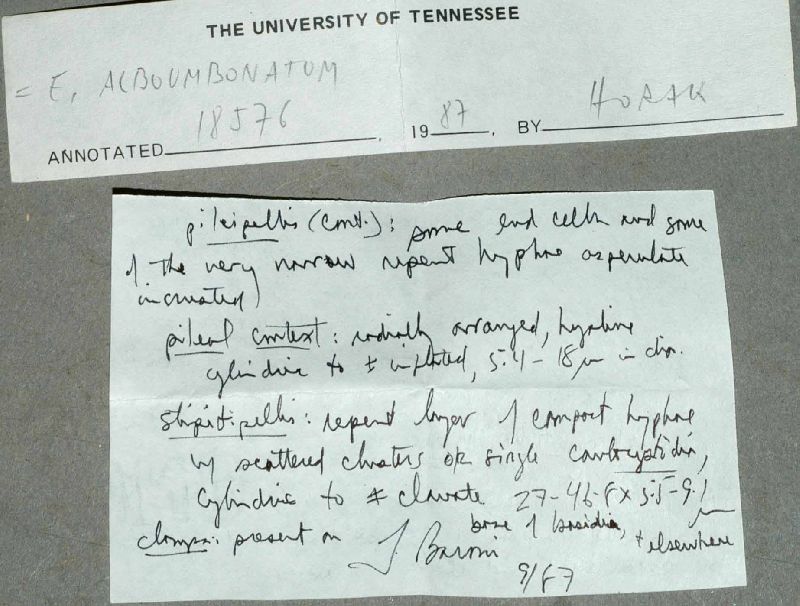 THE UNIVERSITY OF TENNESSEE
= E. ALBOUMBONATUM
18576
ANNOTATED 1987, BY HORAK
pileipellis (cont.): some end cells and some
of the very narrow repent hyphae asperulate
incrusted)
pileal context: radially arranged, hyaline
cylindric to ± inflated, 5.4-18 µm in dia.
stipitipellis: repent layer of compact hyphae
w/ scattered clusters or single caulocystidia,
cylindric to ± clavate 27-46.8 x 5.5-9.1 µm
clamps: present on base of basidia, + elsewhere
J Baroni
9/87